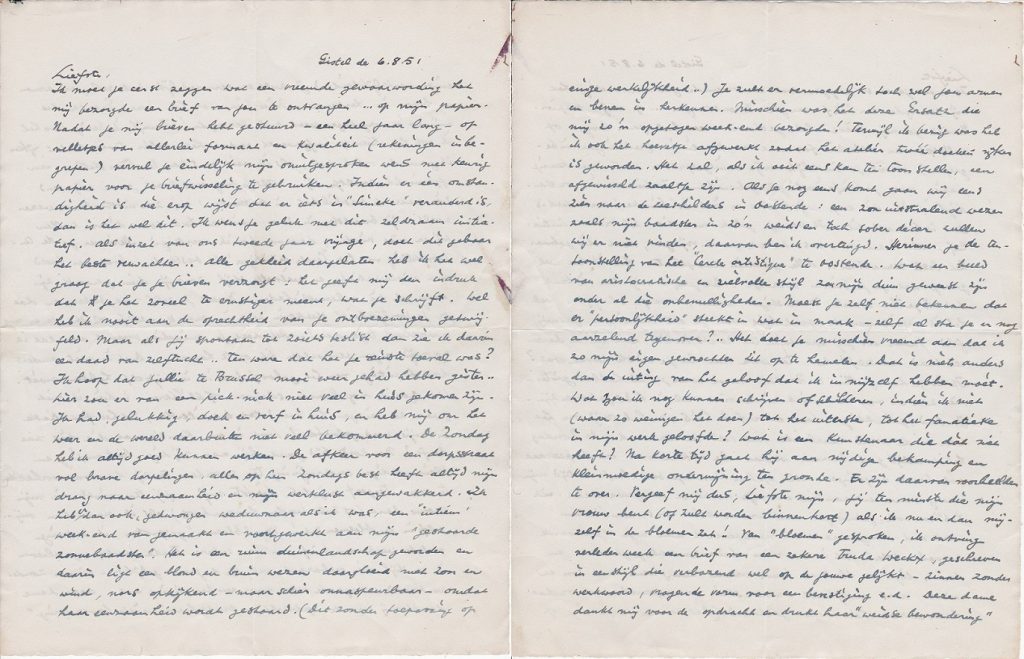 Gistel de 6.8.51
Liefste,
Ik moet je eerst zeggen wat een vreemde gewaarwording het
mij bezorgde een brief van jou te ontvangen ... op mijn papier.
Nadat je mij brieven hebt gestuurd – een heel jaar lang – op
velletjes van allerlei formaat en kwaliteit (rekeningen inbe-
grepen) vervul je eindelijk mijn onuitgesproken wens met keurig
papier voor je briefwisseling te gebruiken. Indien er één omstan-
digheid is die erop wijst dat er iets is veranderd is,
dan is het wel dit. Ik wens je geluk met dit zeldzaam initia-
tief. Als inzet van ons tweede jaar vrijage, doet dit gebaar
het beste verwachten.. Alle gekheid daargelaten heb ik het wel
graag dat je je brieven verzorgt: het geeft mij den indruk
dat je het zoveel te ernstiger meent, wat je schrijft. Wel
heb ik nooit aan de oprechtheid van je ontboezemingen getwij-
feld. Maar als jij spontaan tot zoiets beslist dan zie ik daarin
een daad van zelftucht.. ten ware dat het je reinste toeval was?
Ik hoop dat jullie te Brussel mooi weer gehad hebben gister..
hier zou er van een pick-nick niet veel in huis gekomen zijn.
Ik had, gelukkig, doek en verf in huis, en heb mij om het
weer en de wereld daarbuiten niet veel bekommerd. De Zondag
heb ik altijd goed kunnen werken. De afkeer voor een dorpsstraat
vol brave dorpelingen allen op hun Zondags best heeft altijd mijn
drang naar eenzaamheid en mijn werklust aangewakkerd. Ik
heb er dan ook, gedwongen weduwnaar als ik was, een "intiem"
week-end van gemaakt en voortgewerkt aan mijn "gestoorde
zonnebaadster". Het is een ruim duinenlandschap geworden en
daarin ligt een blond en bruin wezen doorgloeid met zon en
wind, nors opkijkend – maar schier onnaspeurbaar – omdat
haar eenzaamheid wordt gestoord. (Dit zonder toepassing op
enige werkelijkheid..) Je zult er vermoedelijk toch wel jou armen
en benen in herkennen. Misschien was het deze Ersatz die
mij zo'n opgetogen week-end bezorgde! Terwijl ik bezig was heb
ik ook het hoevetje afgewerkt zodat het atelier twee doeken rijker
is geworden. Het zal, als ik ooit eens kan ten toon stellen, een
afgewisseld zaaltje zijn. Als je nog eens komt gaan wij eens
zien naar de in Oostende: een zon uitstralend wezen
zoals mijn baadster in zo'n weids en toch sober décor zullen
wij er niet vinden, daarvan ben ik overtuigd. Herinner je de ten-
toonstelling van het "Cercle artistique" te Oostende. Wat een beeld
van aristocratische en zielvolle stijl zou mijn duin geweest zijn
onder al die onbenulligheden. Moest je zelf niet bekennen dat
er "persoonlijkheid" steekt in wat ik maak – zelf al sta je er nog
aarzelend tegenover?.. Het doet je misschien vreemd aan dat ik
zo mijn eigen gewrochten zit op te hemelen. Dat is niets anders
dan de uiting van het geloof dat ik in mijzelf hebben moet.
Wat zou ik nog kunnen schrijven of schilderen, indien ik niet
(waar zo weinigen het doen) tot het uiterste, tot het fanatieke
in mijn werk geloofde? Wat is een kunstenaar die dat niet
heeft? Na korte tijd gaat hij aan nijdige bekamping en
kleinmoedige ondermijning ten gronde. Er zijn daarvan voorbeelden
te over. Vergeef mij dus, liefste mijn, jij ten minste die mijn
vrouw bent (of zult worden binnenkort) als ik nu en dan mij-
zelf in de bloemen zet!! Van "bloemen" gesproken, ik ontving
verleden week een brief van een zekere Truda Weckx, geschreven
in een stijl die verbazend wel op de jouwe gelijkt – zinnen zonder
werkwoord, vragende vorm voor een bevestiging e.d. Deze dame
dankt mij voor de opdracht en drukt haar "weidse bewondering"